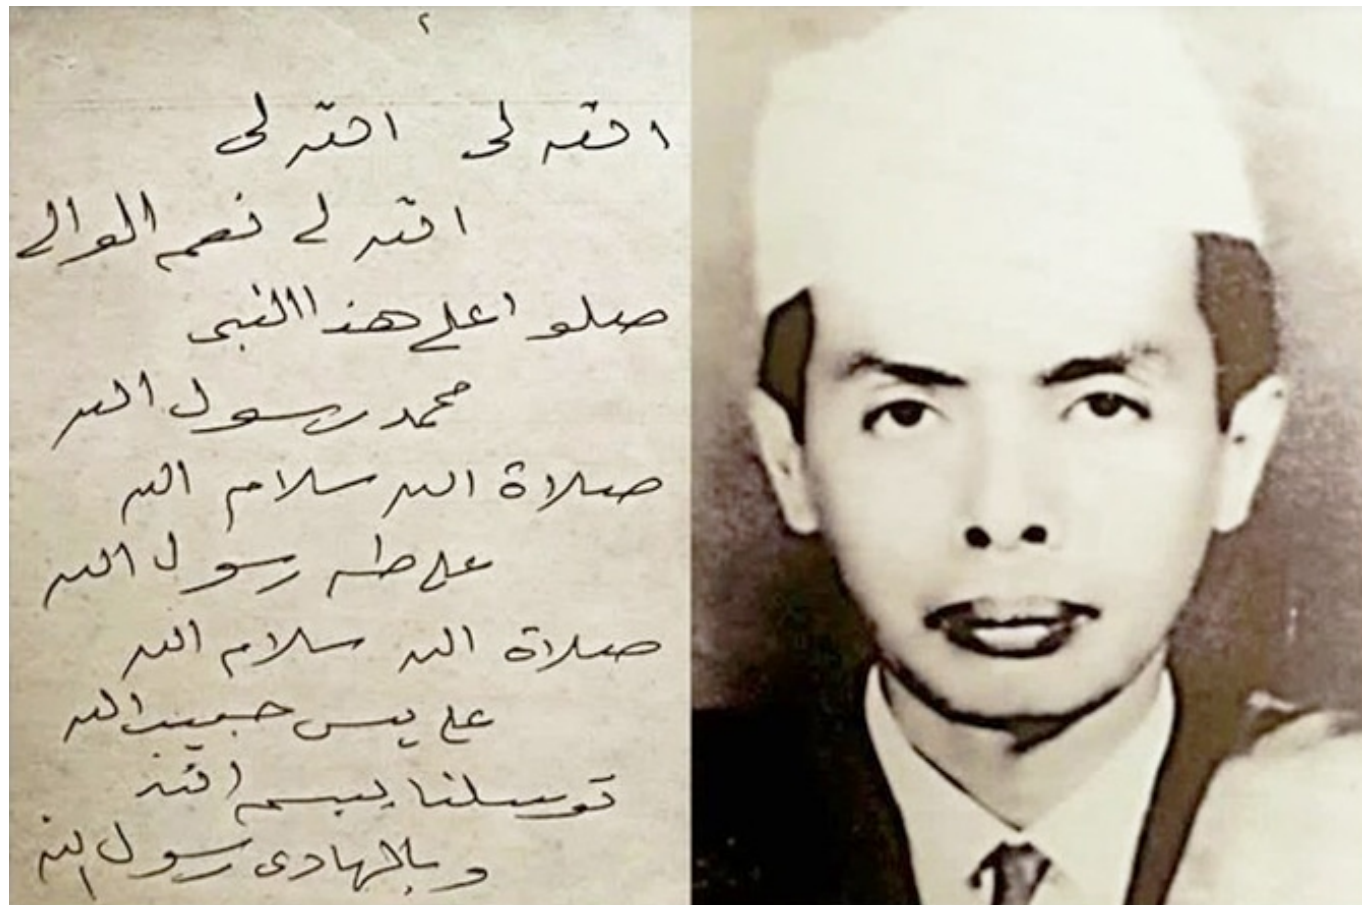 ٢
الله لى الله لى
الله لے نعم الوالے
صلوا علے هذا النبى
محمد رسول الله
صلاة الله سلام الله
علے طه رسول الله
صلاة الله سلام الله
علے يس حبيب الله
توسلنا ببسم الله
وبالهادى رسول الله